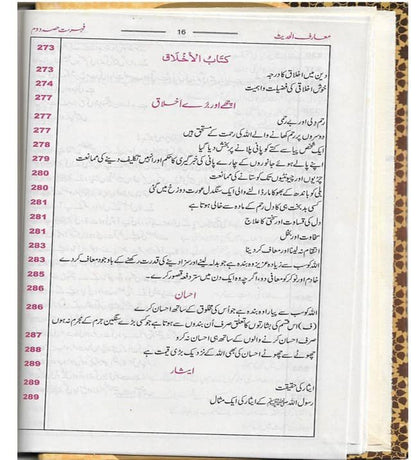 معارف الحدیث 16 فہرست حصہ دوم
کتابُ الاَخلاق 273
دین میں اخلاق کا درجہ 273
خوش اخلاقی کی فضیلت و اہمیت 274
اچھے اور بُرے اَخلاق 277
رحم دلی اور بے رحمی 277
دوسروں پر رحم کھانے والے ہی اللہ کی رحمت کے مستحق ہیں 277
ایک شخص پیاسے کتے کو پانی پلانے پر بخش دیا گیا 278
اپنے پالے ہوئے جانوروں کے چارے پانی کی خبر گیری کا حکم اور انہیں تکلیف دینے کی ممانعت 279
چڑیوں اور چیونٹیوں تک کو ستانے کی ممانعت 280
بلی کو باندھ کے بھوکا مار ڈالنے والی ایک سنگدل عورت دوزخ میں گئی 280
کسی بد بخت ہی کا دل رحم کے مادہ سے خالی ہوتا ہے 281
دل کی قساوت اور سختی کا علاج 281
سخاوت اور بخل 281
انتقام نہ لینا اور معاف کر دینا 283
اللہ کو سب سے زیادہ عزیز وہ بندہ ہے جو بدلہ لینے اور سزا دینے کی قدرت رکھنے کے باوجود معاف کر دے 283
خادم اور نوکر کو معافی دو، اگرچہ وہ ایک دن میں ستر دفعہ قصور کرے۔ 285
احسان 286
اللہ کو سب سے پیارا وہ بندہ ہے جو اُس کی مخلوق کے ساتھ احسان کرے 286
(ف) اس قسم کی بشارتوں کا تعلق صرف اُن بندوں سے ہوتا ہے جو کسی بڑے سنگین جرم کے مجرم نہ ہوں
صرف احسان کرنے والوں کے ساتھ ہی احسان نہ کرو 287
چھوٹے سے چھوٹے احسان کی بھی اللہ کے نزدیک بڑی قیمت ہے 288
ایثار 289
ایثار کی حقیقت 289
رسول اللہ ﷺ کے ایثار کی ایک مثال 289